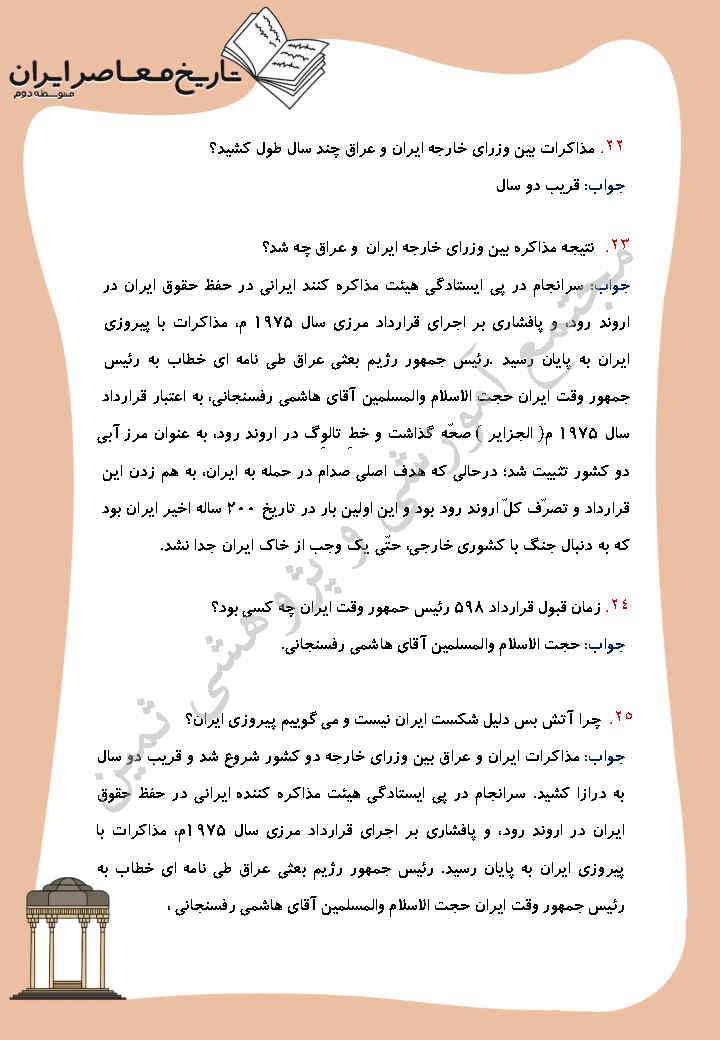 تاریخ معاصر ایران
متوسطه دوم
۲۲. مذاکرات بین وزرای خارجه ایران و عراق چند سال طول کشید؟
جواب: قریب دو سال
۲۳. نتیجه مذاکره بین وزرای خارجه ایران و عراق چه شد؟
جواب: سرانجام در پی ایستادگی هیئت مذاکره کنند ایرانی در حفظ حقوق ایران در
اروند رود، و پافشاری بر اجرای قرارداد مرزی سال ۱۹۷۵ م، مذاکرات با پیروزی
ایران به پایان رسید .رئیس جمهور رژیم بعثی عراق طی نامه ای خطاب به رئیس
جمهور وقت ایران حجت الاسلام والمسلمین آقای هاشمی رفسنجانی، به اعتبار قرارداد
سال ۱۹۷۵ م( الجزایر ) صحّه گذاشت و خطِ تالوِگ در اروند رود، به عنوان مرز آبی
دو کشور تثبیت شد؛ درحالی که هدف اصلی صدام در حمله به ایران، به هم زدن این
قرارداد و تصرّف کلّ اروند رود بود و این اولین بار در تاریخ ۲۰۰ ساله اخیر ایران بود
که به دنبال جنگ با کشوری خارجی، حتّی یک وجب از خاک ایران جدا نشد.
۲۴. زمان قبول قرارداد ۵۹۸ رئیس حمهور وقت ایران چه کسی بود؟
جواب: حجت الاسلام والمسلمین آقای هاشمی رفسنجانی.
۲۵. چرا آتش بس دلیل شکست ایران نیست و می گوییم پیروزی ایران؟
جواب: مذاکرات ایران و عراق بین وزرای خارجه دو کشور شروع شد و قریب دو سال
به درازا کشید. سرانجام در پی ایستادگی هیئت مذاکره کننده ایرانی در حفظ حقوق
ایران در اروند رود، و پافشاری بر اجرای قرارداد مرزی سال ۱۹۷۵م، مذاکرات با
پیروزی ایران به پایان رسید. رئیس جمهور رژیم بعثی عراق طی نامه ای خطاب به
رئیس جمهور وقت ایران حجت الاسلام والمسلمین آقای هاشمی رفسنجانی ،
مجتمع آموزشی و پژوهشی ثمین